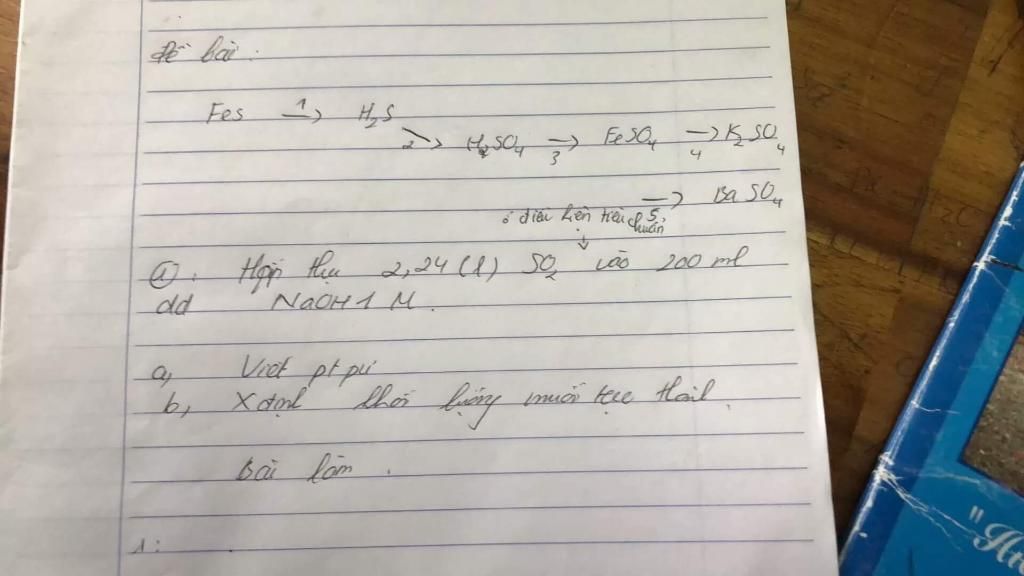 Đề bài:
FeS 1→ H2S
2→ H2SO4 3→ FeSO4 4→ K2SO4
5→ BaSO4
ở điều kiện tiêu chuẩn
②. Hấp thụ 2,24 (l) SO2 vào 200 ml
dd NaOH 1 M.
a, Viết pt pư
b, X định khối lượng muối tạo thành.
Bài làm.
1:
"